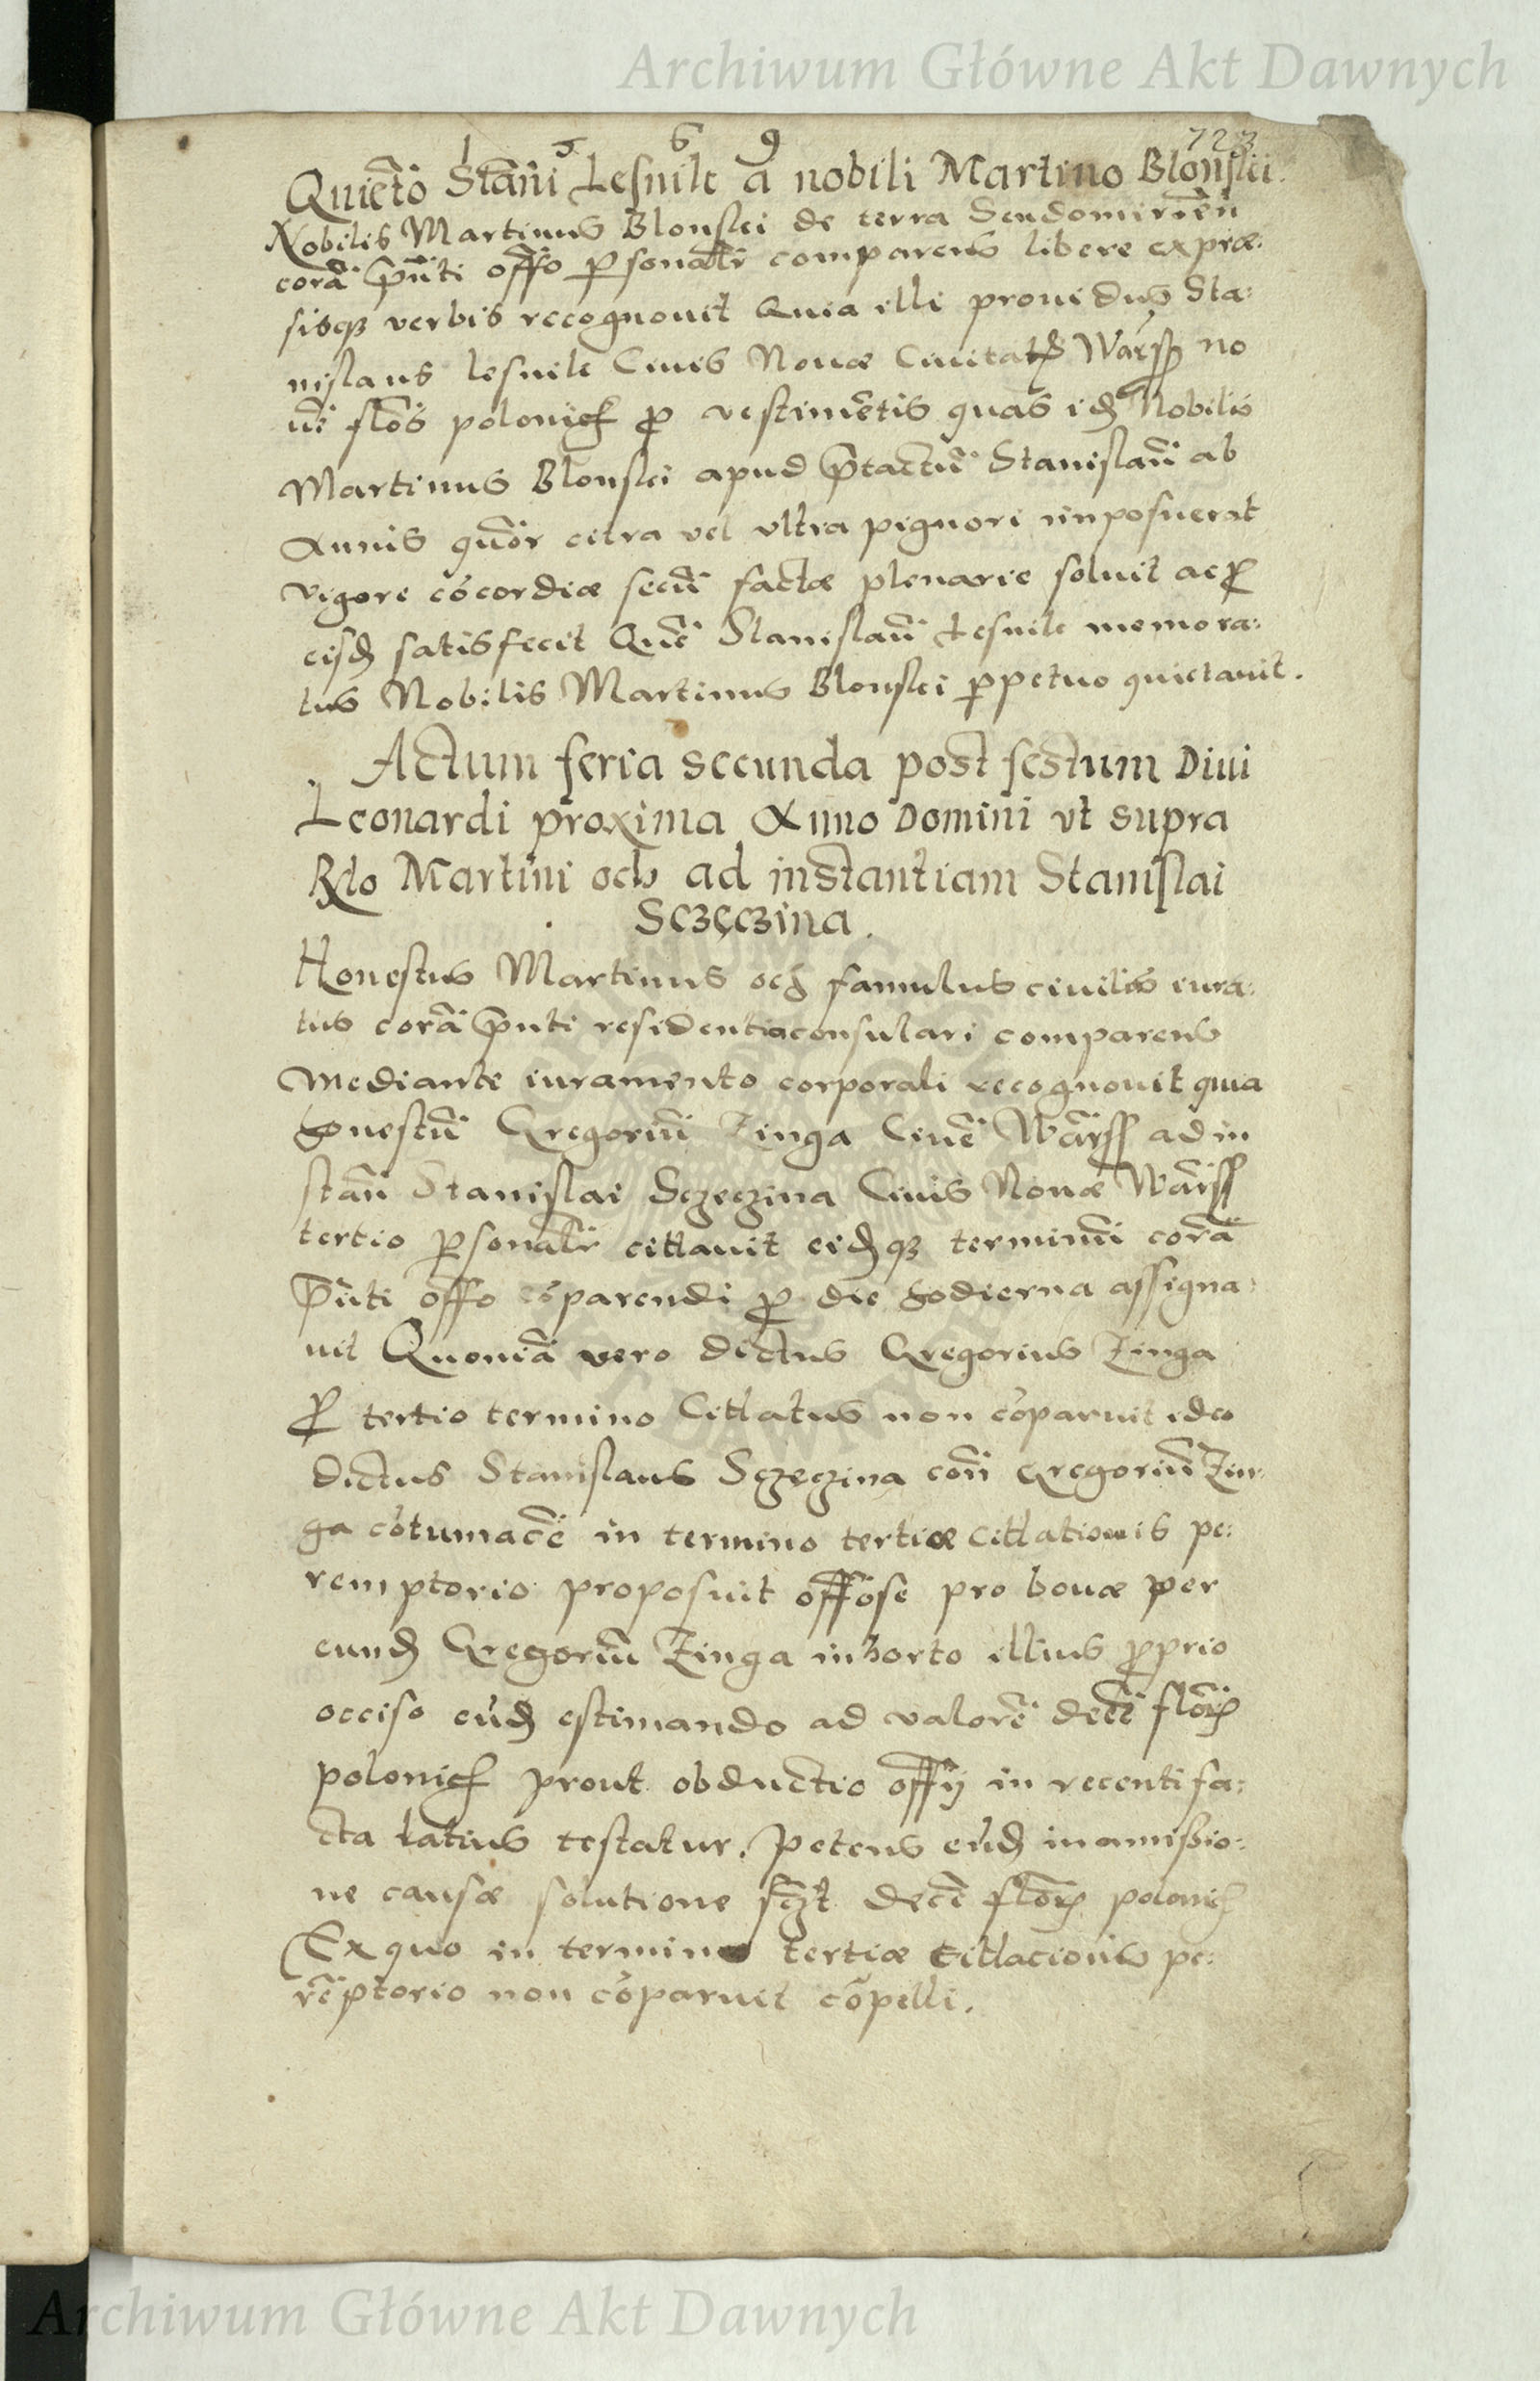 Archiwum Główne Akt Dawnych
1 5 6 9
723
Quietō Stāni Lesnik a nobili Martino Blonski.
Nobilis Martinus Blonski de terra Sendomirien̄
corā p̄nti offō ꝑsonalr̄ comparens libere expræ:
sisqꝫ verbis recognouit Quia illi prouidus Sta:
nislaus lesnik Ciuis Nouæ Ciuitat̄ꝭ Warsꝭ no
uē flōs polonicꝭ ꝓ vestimētis quas idꝫ Nobilis
Martinus Blonski apud p̄tactū Stanislaū ab
Annis quōr citra vel vltra pignori imposuerat
vigore cōcordiæ secū factæ plenarie soluit ac ꝓ
eisdꝫ satisfecit Quē Stanislaū Lesnik memora:
tus Nobilis Martinus Blonski ꝑpetuo quietauit.
Actum feria secunda post festum Diui
Leonardi proxima Anno Domini vt supra
Rlo Martini och ad instantiam Stanislai
Sczęczina.
Honestus Martinus och famulus ciuilis iura:
tus corā p̄nti residentia consulari comparens
Mediante iuramento corporali recognouit quia
honestū Gregoriū Zinga Ciuē Warsꝭ ad in
stan̄ Stanislai Sczęczina Ciuis Nouæ Warsꝭ
tertio ꝑsonalr̄ cittauit eidꝫqꝫ terminū corā
p̄nti offō cōparendi ꝓ die hodierna assigna:
uit Quoniā vero dictus Gregorius Zinga
ꝓ tertio termino Cittatus non cōparuit ideo
dictus Stanislaus Sczęczina con̄ Gregoriū Zin:
ga cōtumacē in termino tertiæ Cittationis pe:
remptorio proposuit offōse pro bouæ per
eundꝫ Gregoriū Zinga in horto illius ꝓprio
occiso eūdꝫ estimando ad valorē decē florꝭ
polonicꝭ prout obductio offij in recenti fa:
cta latius testatur. Petens eūdꝫ in amissio:
ne causæ solutione sczt decē florꝭ polonicꝭ
Ex quo in termino tertiæ Cittacionis pe:
rēptorio non cōparuit cōpelli.
Archiwum Główne Akt Dawnych